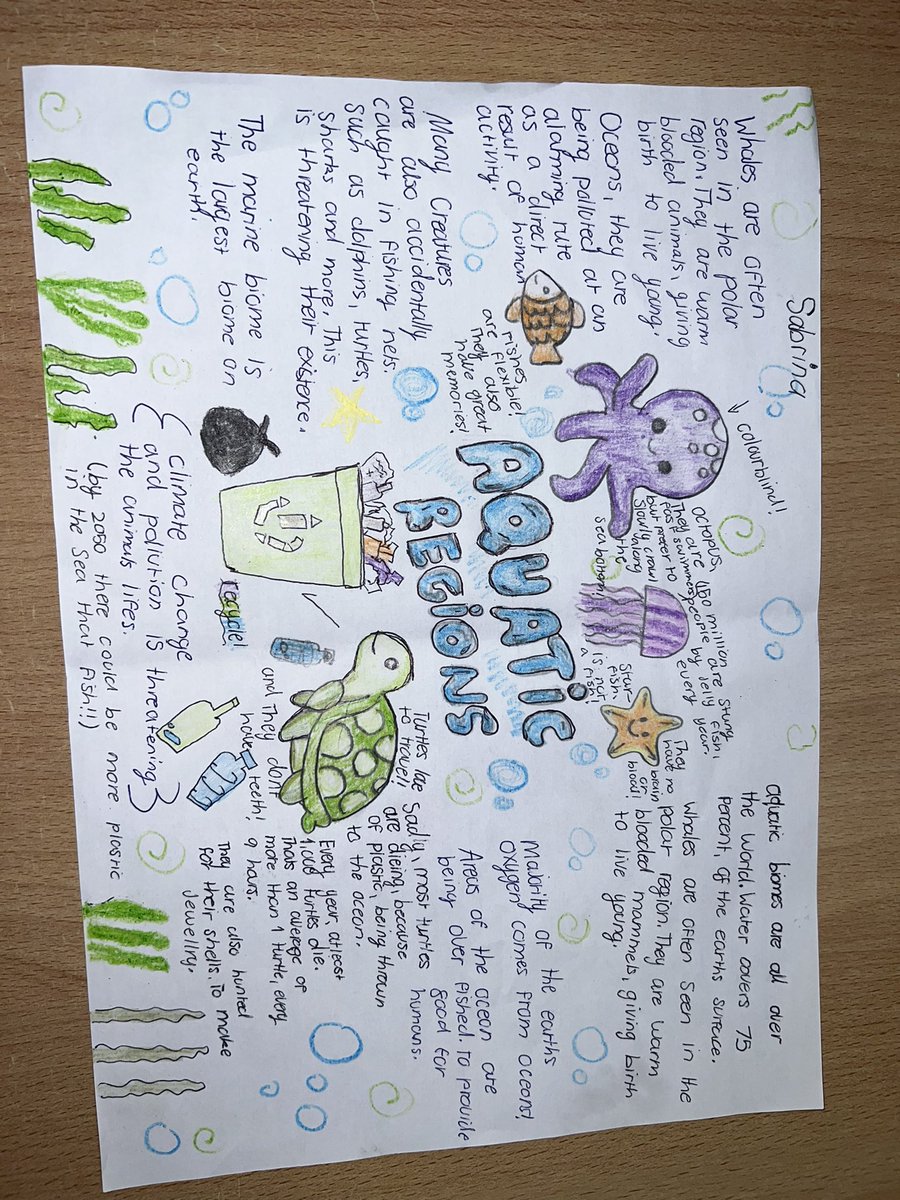 Sabrina
Whales are often
seen in the polar
region. They are warm
blooded animals, giving
birth to live young.
Oceans, they are
being polluted at an
alarming rute
as a direct
result of homan
activity.
Many Creatures
are also accidentally
caught in fishing nets.
Such as dolphins, turtles,
sharks and more. This
is threatening their existence.
The marine biome is
the largest biome on
earth!
fishes
are flexible!
They also
have great
memories!
colourblind!!
octopus,
They are
fast swimmers
but prefer to
Slowly crawl
along
the
sea bottom!
AQUATIC
REGIONS
150 million are stung
people by Jelly
fish,
every year.
Star
fish!
IS not
a fish!
They
have no
brain
or
blood!
aquatic biomes are all over
the world. Water covers 75
percent, of the earths surface.
Whales are often seen in the
polar region. They are warm
blooded mammels, giving birth
to live young.
Majority of the earths
oxygen comes from oceans!
Areas of the ocean are
being over fished. To provide
good for
humans.
Turtles like
to travel!
Sadly, most turtles
are dieing, because
of plastic, being thrown
to the ocean.
and They dont
have
teeth!
Every year, atleast
1,000 turtles die.
Thats an average of
more than 1 turtle, every
9 hours.
They are also hunted
for their shells. To make
Jewellry.
recycle!
climate change
and polution is threatening
the animus lifes.
(by 2050 there could be more plastic
in the Sea that fish!!)